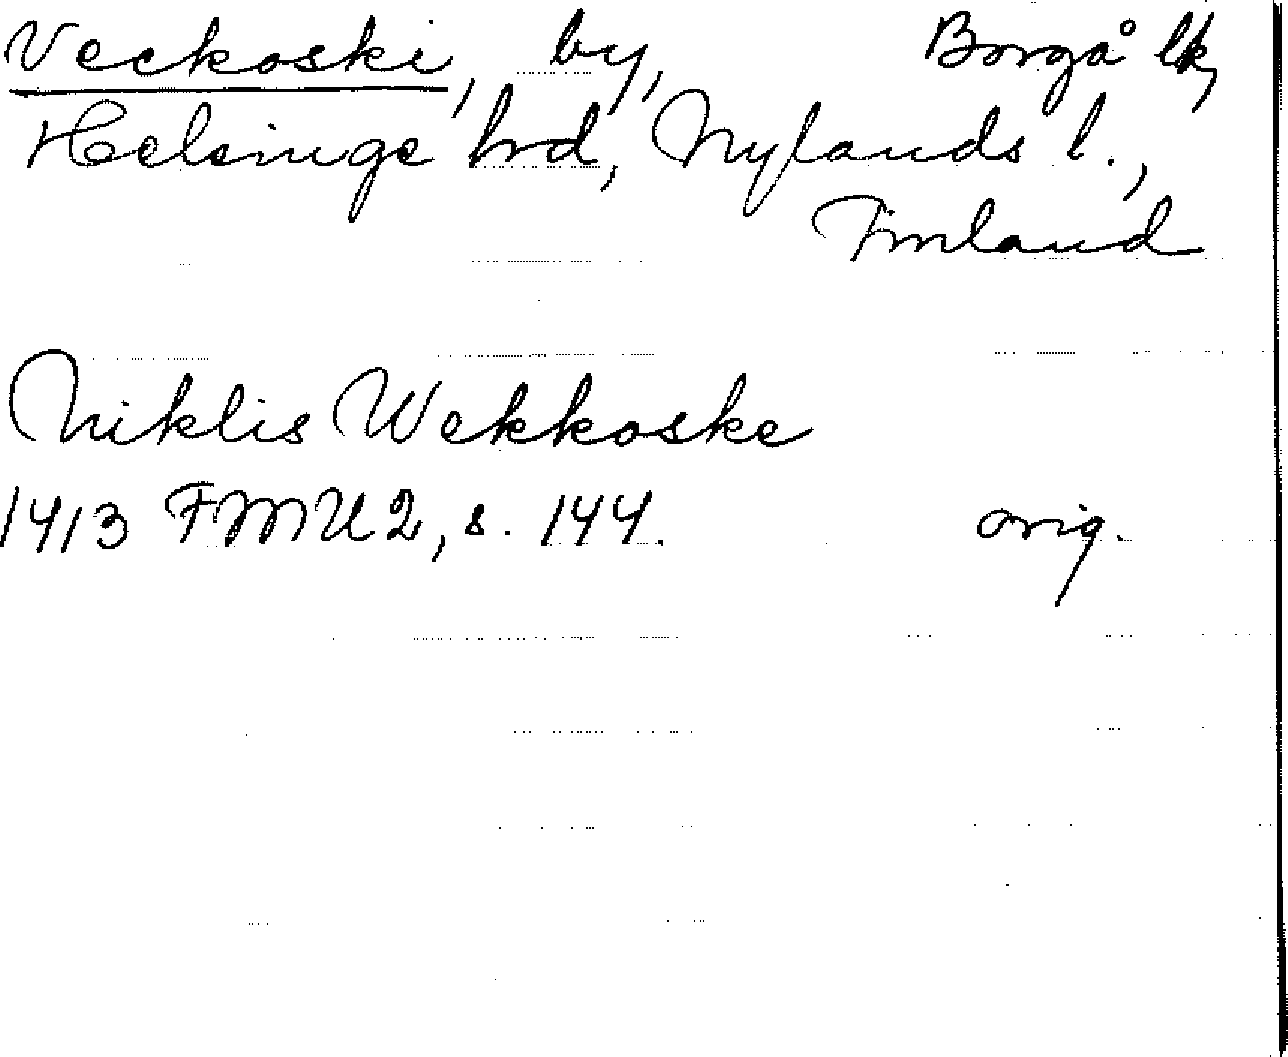 Veckoski, by, Borgå lk,
Helsinge hrd, Nylands l.,
Finland
Niklis Wekkoske
1413 FMU 2, s. 144. orig.